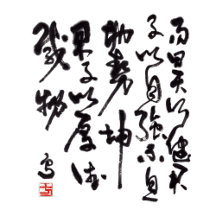 行健君
子以自強不息
地勢坤
君子以厚德
載物